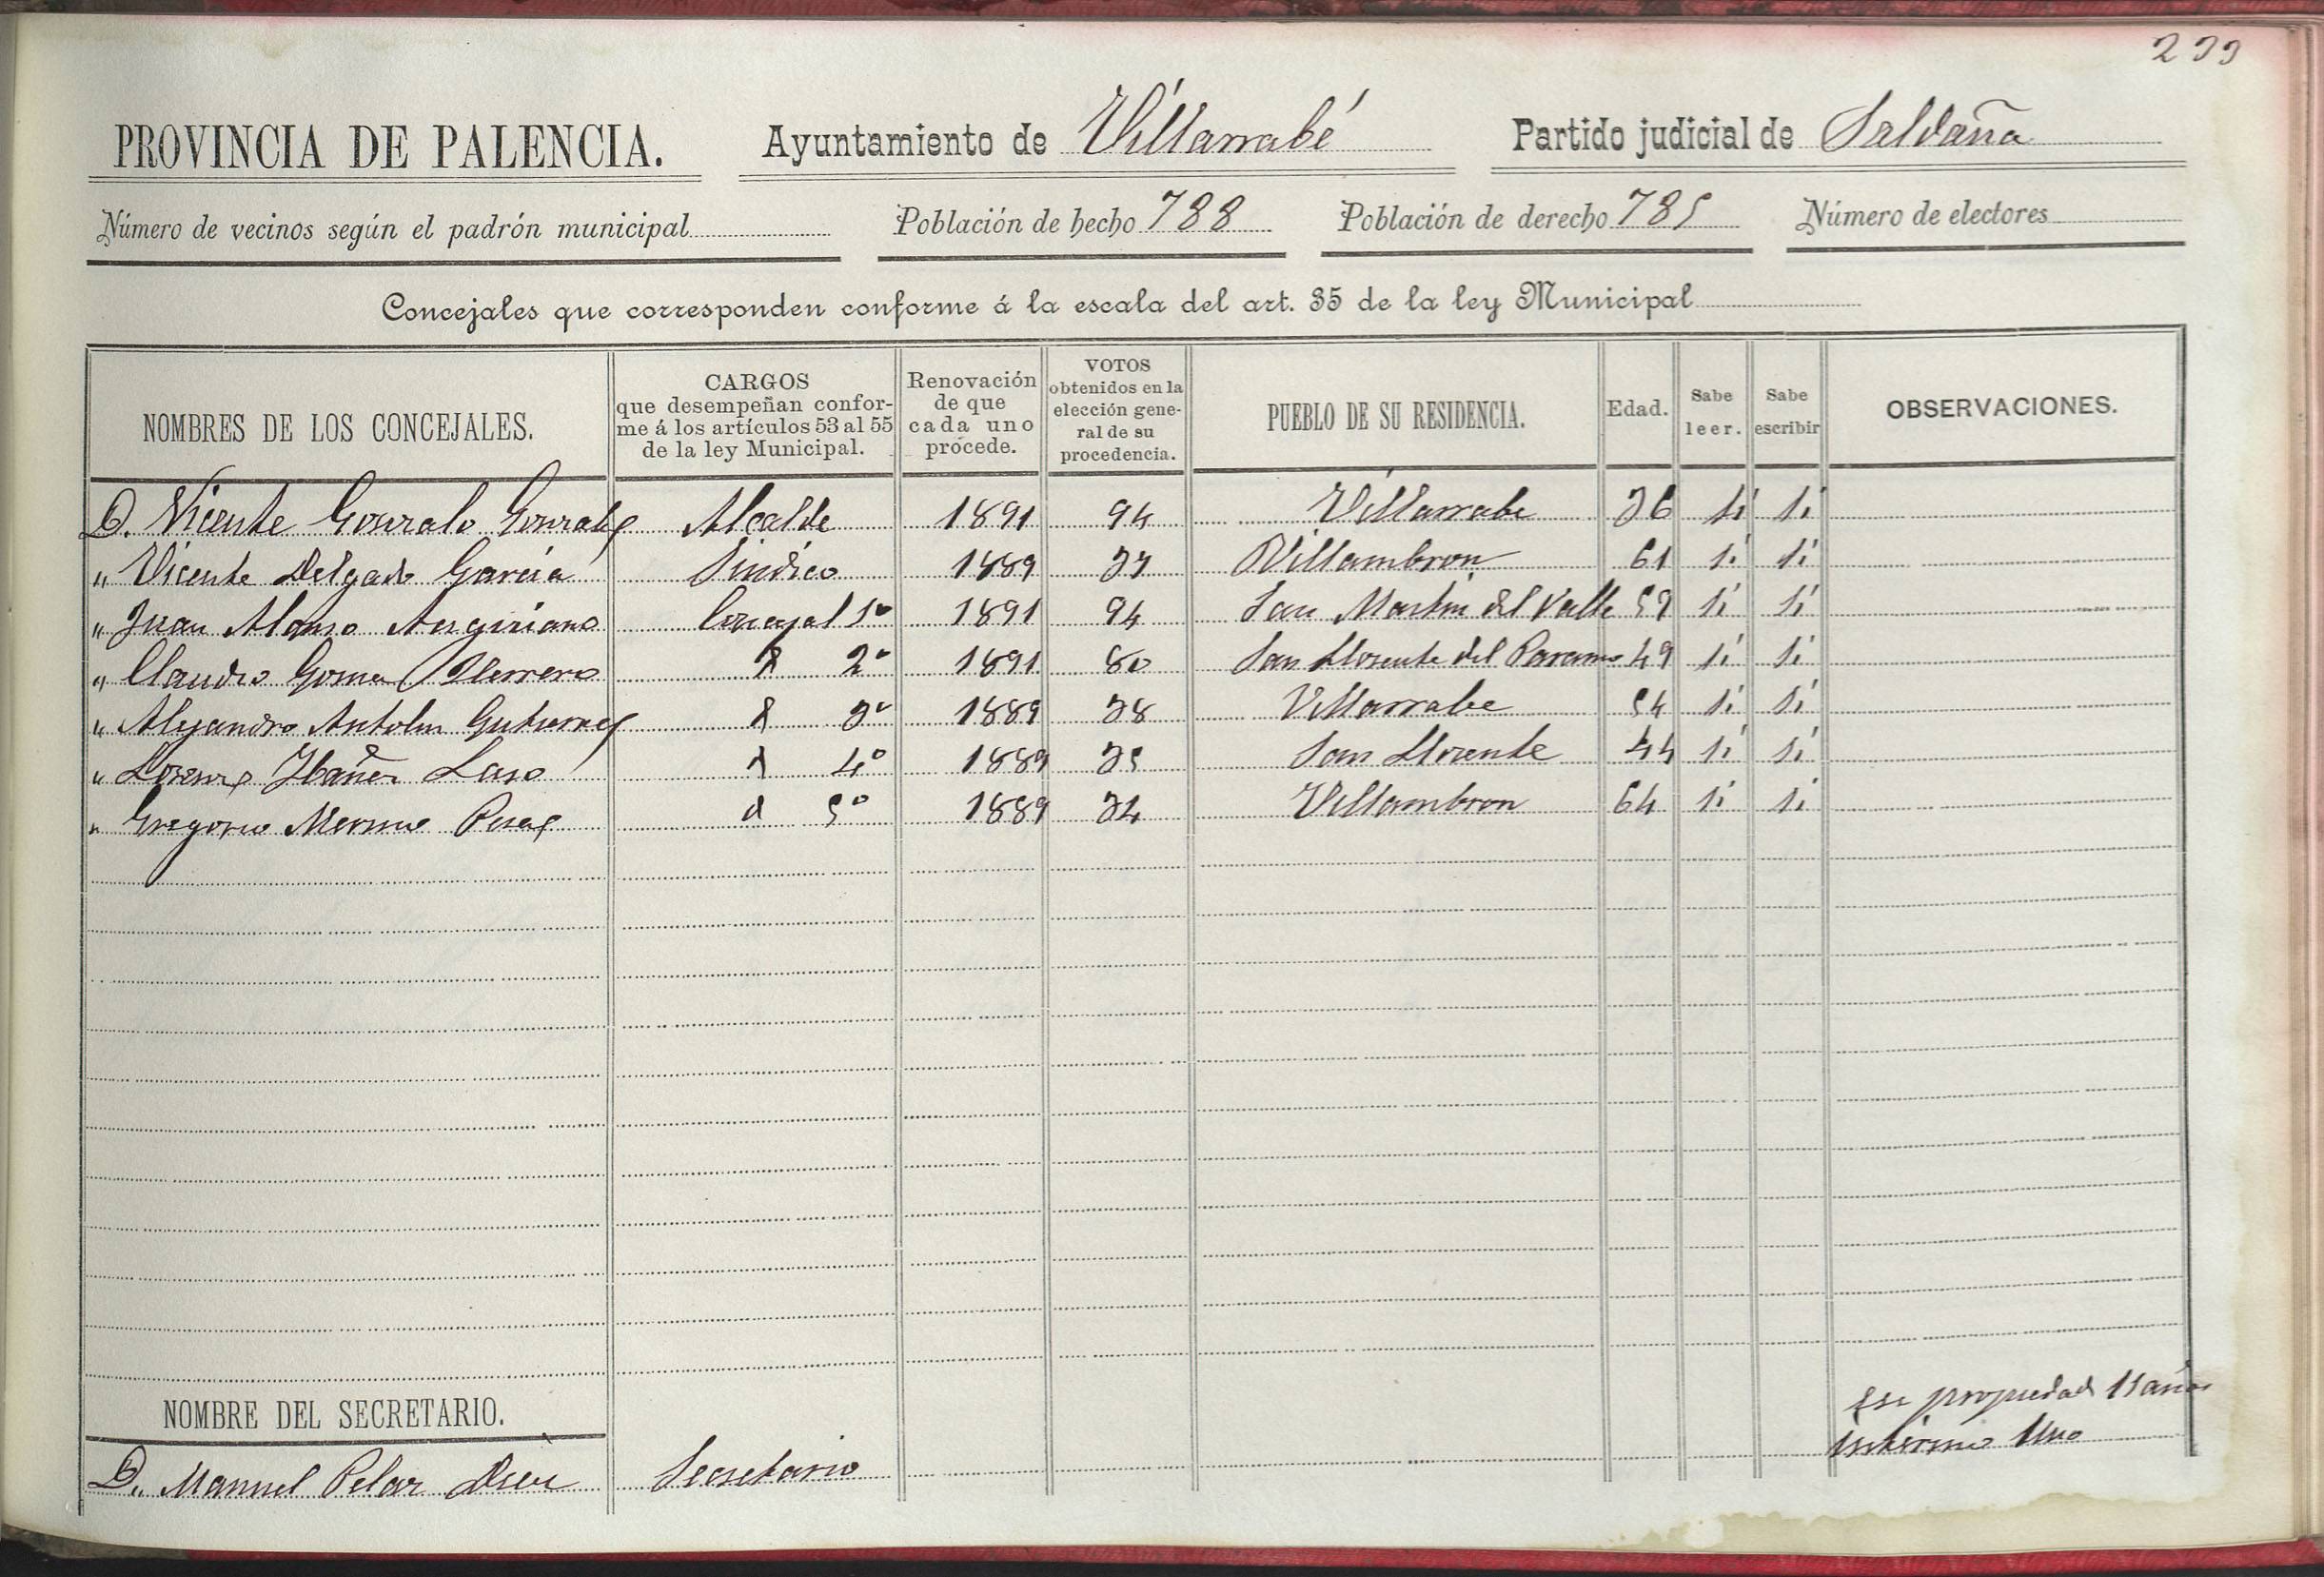 233
PROVINCIA DE PALENCIA. Ayuntamiento de Villarrabé Partido judicial de Saldaña
Número de vecinos según el padrón municipal Población de hecho 788 Población de derecho 785 Número de electores
Concejales que corresponden conforme á la escala del art. 35 de la ley Municipal
NOMBRES DE LOS CONCEJALES. CARGOS que desempeñan confor-me á los artículos 53 al 55 de la ley Municipal. Renovación de que cada uno procede. VOTOS obtenidos en la elección gene-ral de su procedencia. PUEBLO DE SU RESIDENCIA. Edad. Sabe leer. Sabe escribir OBSERVACIONES.
D. Vicente Gonzalo Gonzalez Alcalde 1891 94 Villarrabe 36 si si
" Vicente Delgado García Sindico 1889 37 Villambron 61 si si
" Juan Alonso Concejal 1º 1891 94 San Martin del Valle 59 si si
" Claudio Gomez Herrero 2º 1891 80 San Llorente del Paramo 49 si si
" Alejandro Antolin Gutierrez 3º 1889 38 Villarrabe 54 si si
" Lorenzo Ibañez Laso 4º 1889 35 San Llorente 44 si si
" Gregorio Merino Perez 5º 1889 34 Villambron 64 si si
NOMBRE DEL SECRETARIO.
D. Manuel Pelaz Secretario
En propiedad años
interino Uno